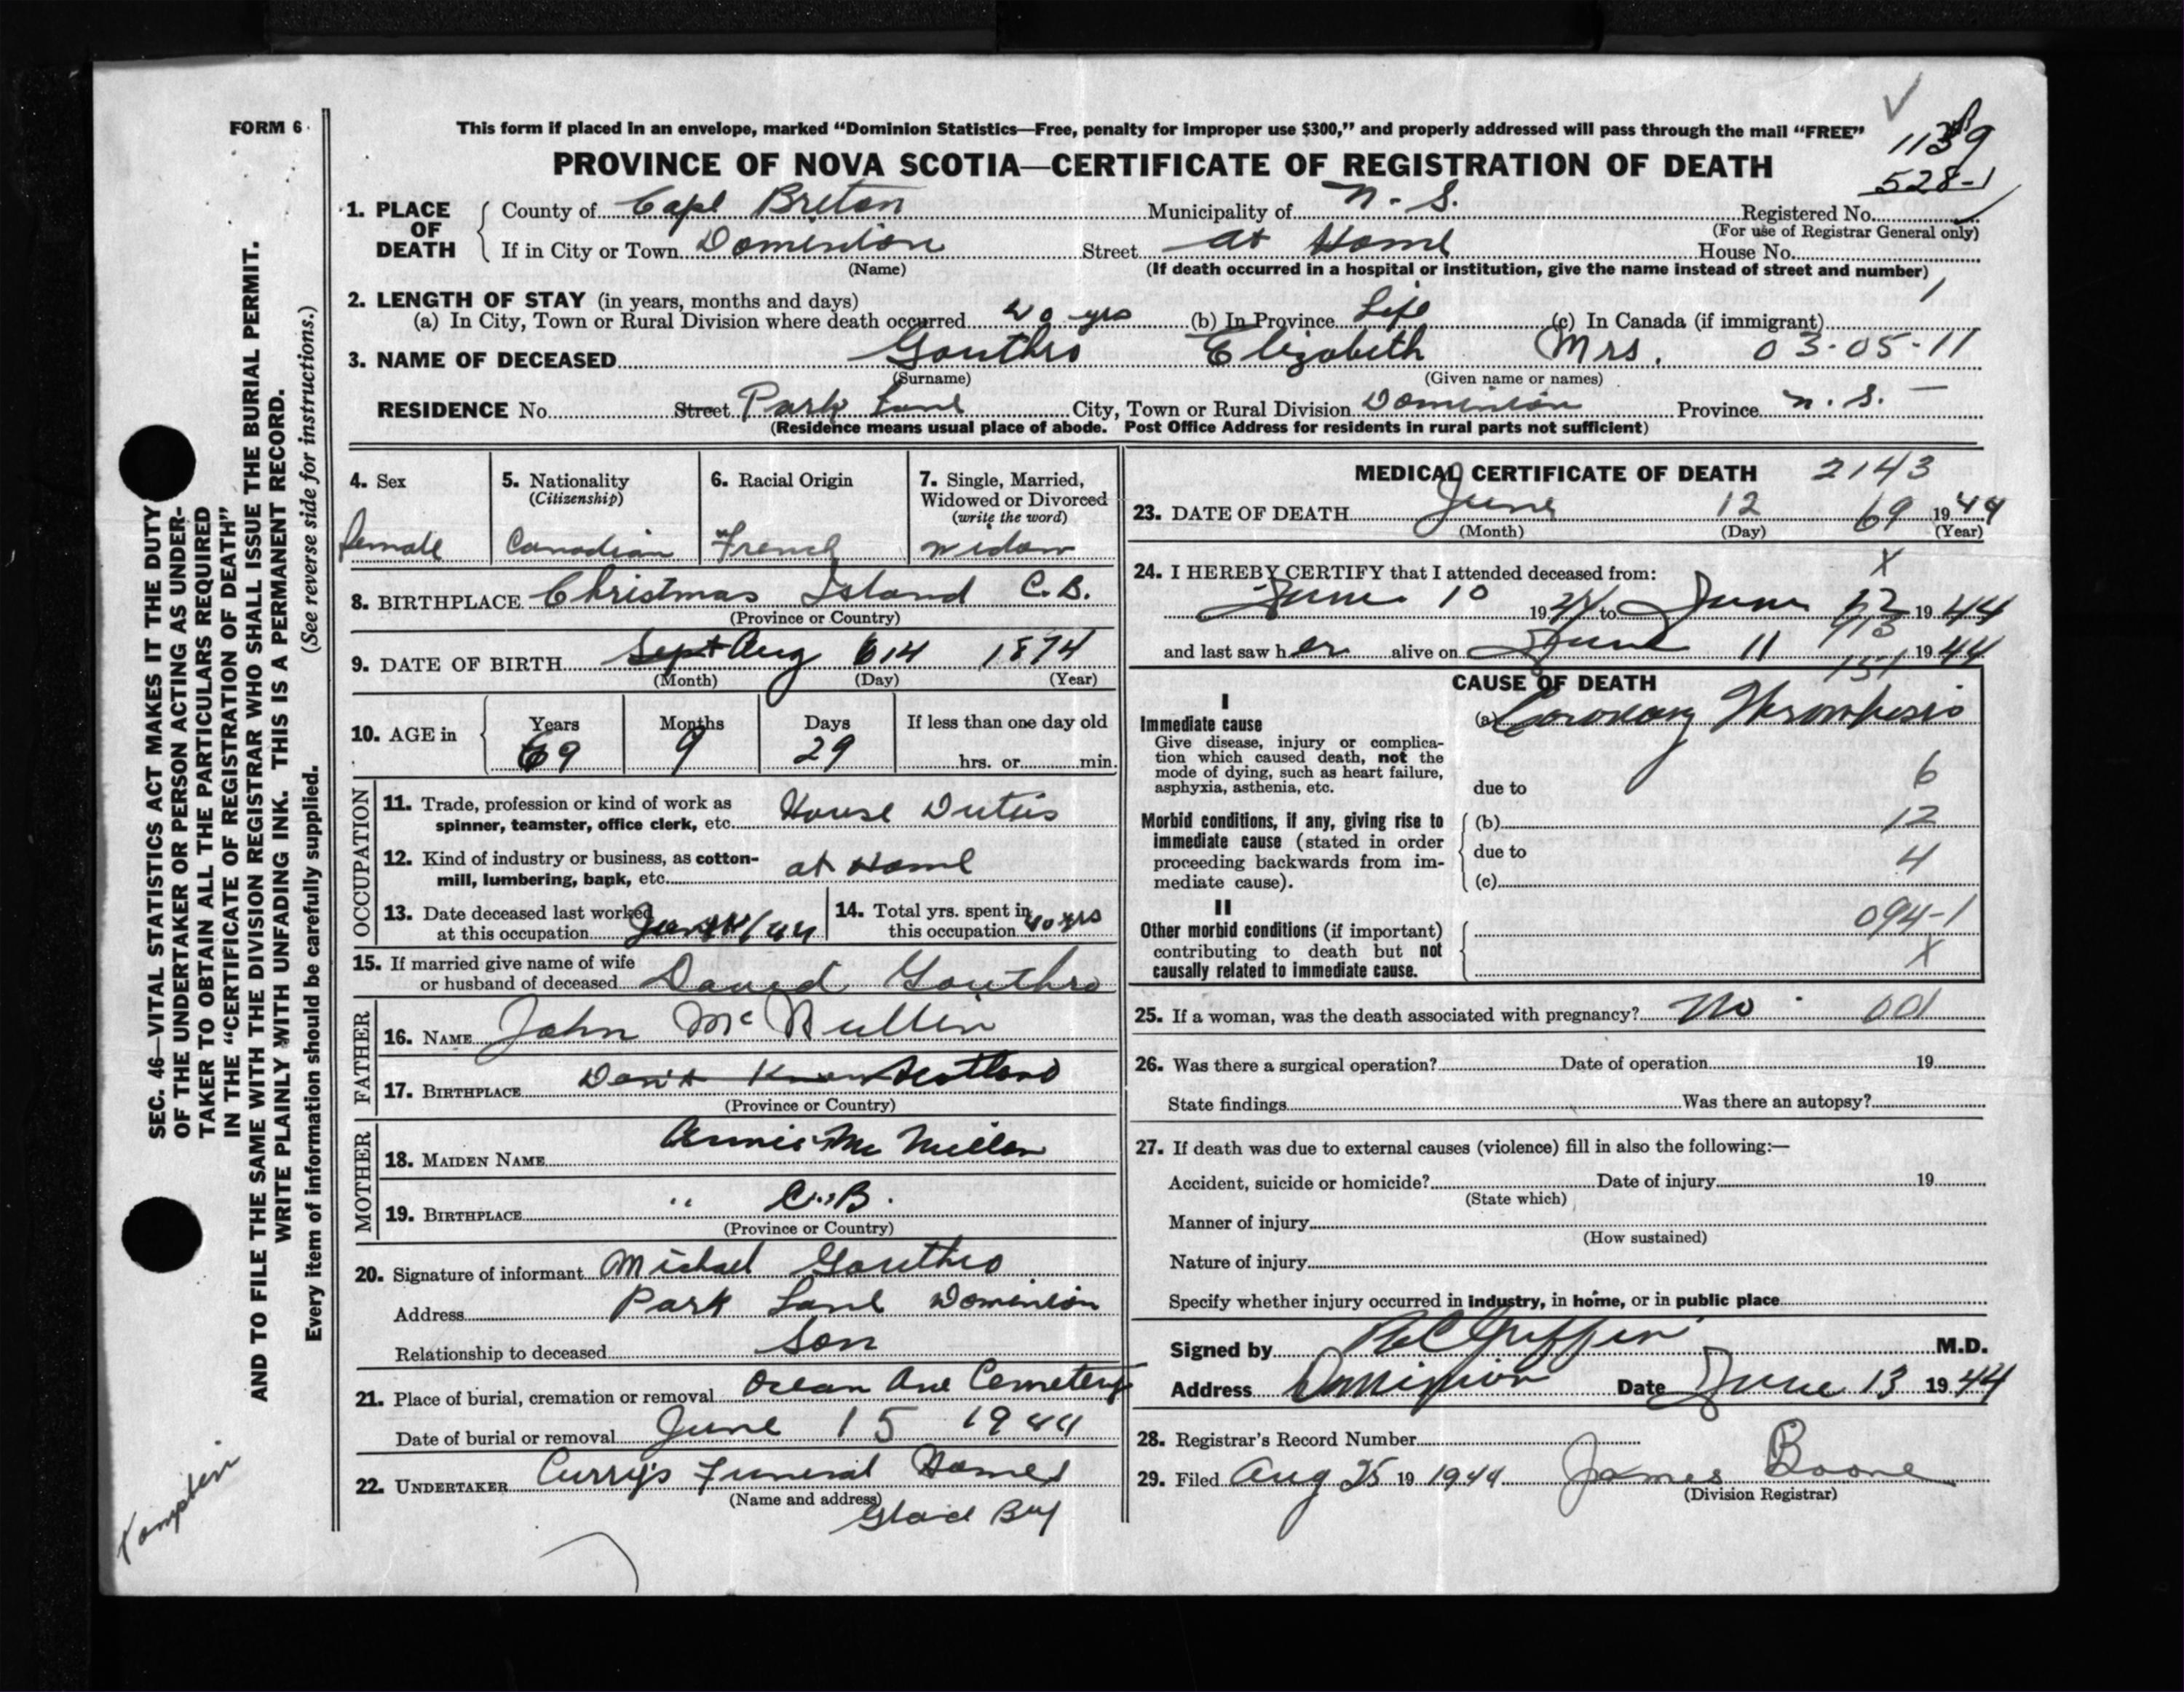 FORM 6
This form if placed in an envelope, marked "Dominion Statistics—Free, penalty for improper use $300," and properly addressed will pass through the mail "FREE"
PROVINCE OF NOVA SCOTIA—CERTIFICATE OF REGISTRATION OF DEATH
528-1
1. PLACE OF DEATH County of Cape Breton Municipality of N. S. Registered No.
(For use of Registrar General only)
If in City or Town Dominion Street at Home House No.
(Name) (If death occurred in a hospital or institution, give the name instead of street and number)
2. LENGTH OF STAY (in years, months and days)
(a) In City, Town or Rural Division where death occurred 40 yrs (b) In Province Life (c) In Canada (if immigrant)
3. NAME OF DECEASED Gouthro Elizabeth Mrs. 03-05-11
(Surname) (Given name or names)
RESIDENCE No. Street Park Lane City, Town or Rural Division Dominion Province N. S.
(Residence means usual place of abode. Post Office Address for residents in rural parts not sufficient)
4. Sex female
5. Nationality (Citizenship) Canadian
6. Racial Origin French
7. Single, Married, Widowed or Divorced (write the word) widow
8. BIRTHPLACE Christmas Island C.B.
(Province or Country)
9. DATE OF BIRTH Sept Aug 14 1874
(Month) (Day) (Year)
10. AGE in Years 69 Months 9 Days 29 If less than one day old hrs. or min.
OCCUPATION
11. Trade, profession or kind of work as spinner, teamster, office clerk, etc. House Duties
12. Kind of industry or business, as cotton-mill, lumbering, bank, etc. at Home
13. Date deceased last worked at this occupation /44
14. Total yrs. spent in this occupation 40 yrs
15. If married give name of wife or husband of deceased David Gouthro
FATHER
16. NAME John McMullin
17. BIRTHPLACE Don't Know Scotland
(Province or Country)
MOTHER
18. MAIDEN NAME Annie Mc
19. BIRTHPLACE " C.B.
(Province or Country)
20. Signature of informant Michael Gouthro
Address Park Lane Dominion
Relationship to deceased Son
21. Place of burial, cremation or removal Ocean Ave Cemetery
Date of burial or removal June 15 1944
22. UNDERTAKER Curry's Funeral Home
(Name and address)
Glace Bay
MEDICAL CERTIFICATE OF DEATH 2143
23. DATE OF DEATH June 12 69 1944
(Month) (Day) (Year)
X
24. I HEREBY CERTIFY that I attended deceased from:
June 10 1944 to June 12 1944
and last saw her alive on June 11 1944
151
CAUSE OF DEATH
I
Immediate cause
Give disease, injury or complication which caused death, not the mode of dying, such as heart failure, asphyxia, asthenia, etc.
(a) Coronary Thrombosis
due to 6
Morbid conditions, if any, giving rise to immediate cause (stated in order proceeding backwards from immediate cause).
(b) 12
due to 4
(c)
II
Other morbid conditions (if important) contributing to death but not causally related to immediate cause.
094-1
X
25. If a woman, was the death associated with pregnancy? No 001
26. Was there a surgical operation? Date of operation 19
State findings Was there an autopsy?
27. If death was due to external causes (violence) fill in also the following:—
Accident, suicide or homicide? Date of injury 19
(State which)
Manner of injury
(How sustained)
Nature of injury
Specify whether injury occurred in industry, in home, or in public place
Signed by Griffin M.D.
Address Dominion Date June 13 1944
28. Registrar's Record Number
29. Filed Aug 25 19 1944 James Boone
(Division Registrar)
SEC. 46—VITAL STATISTICS ACT MAKES IT THE DUTY
OF THE UNDERTAKER OR PERSON ACTING AS UNDER-
TAKER TO OBTAIN ALL THE PARTICULARS REQUIRED
IN THE "CERTIFICATE OF REGISTRATION OF DEATH"
AND TO FILE THE SAME WITH THE DIVISION REGISTRAR WHO SHALL ISSUE THE BURIAL PERMIT.
WRITE PLAINLY WITH UNFADING INK. THIS IS A PERMANENT RECORD.
Every item of information should be carefully supplied. (See reverse side for instructions.)